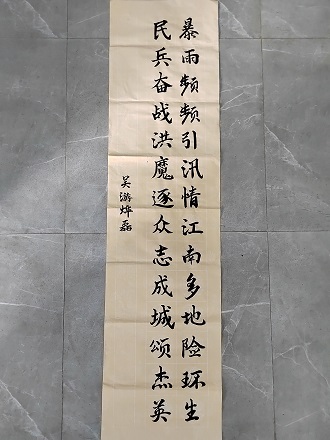 暴雨频频引汛情江南多地险环生
民兵奋战洪魔逐众志成城颂杰英
吴游烨磊